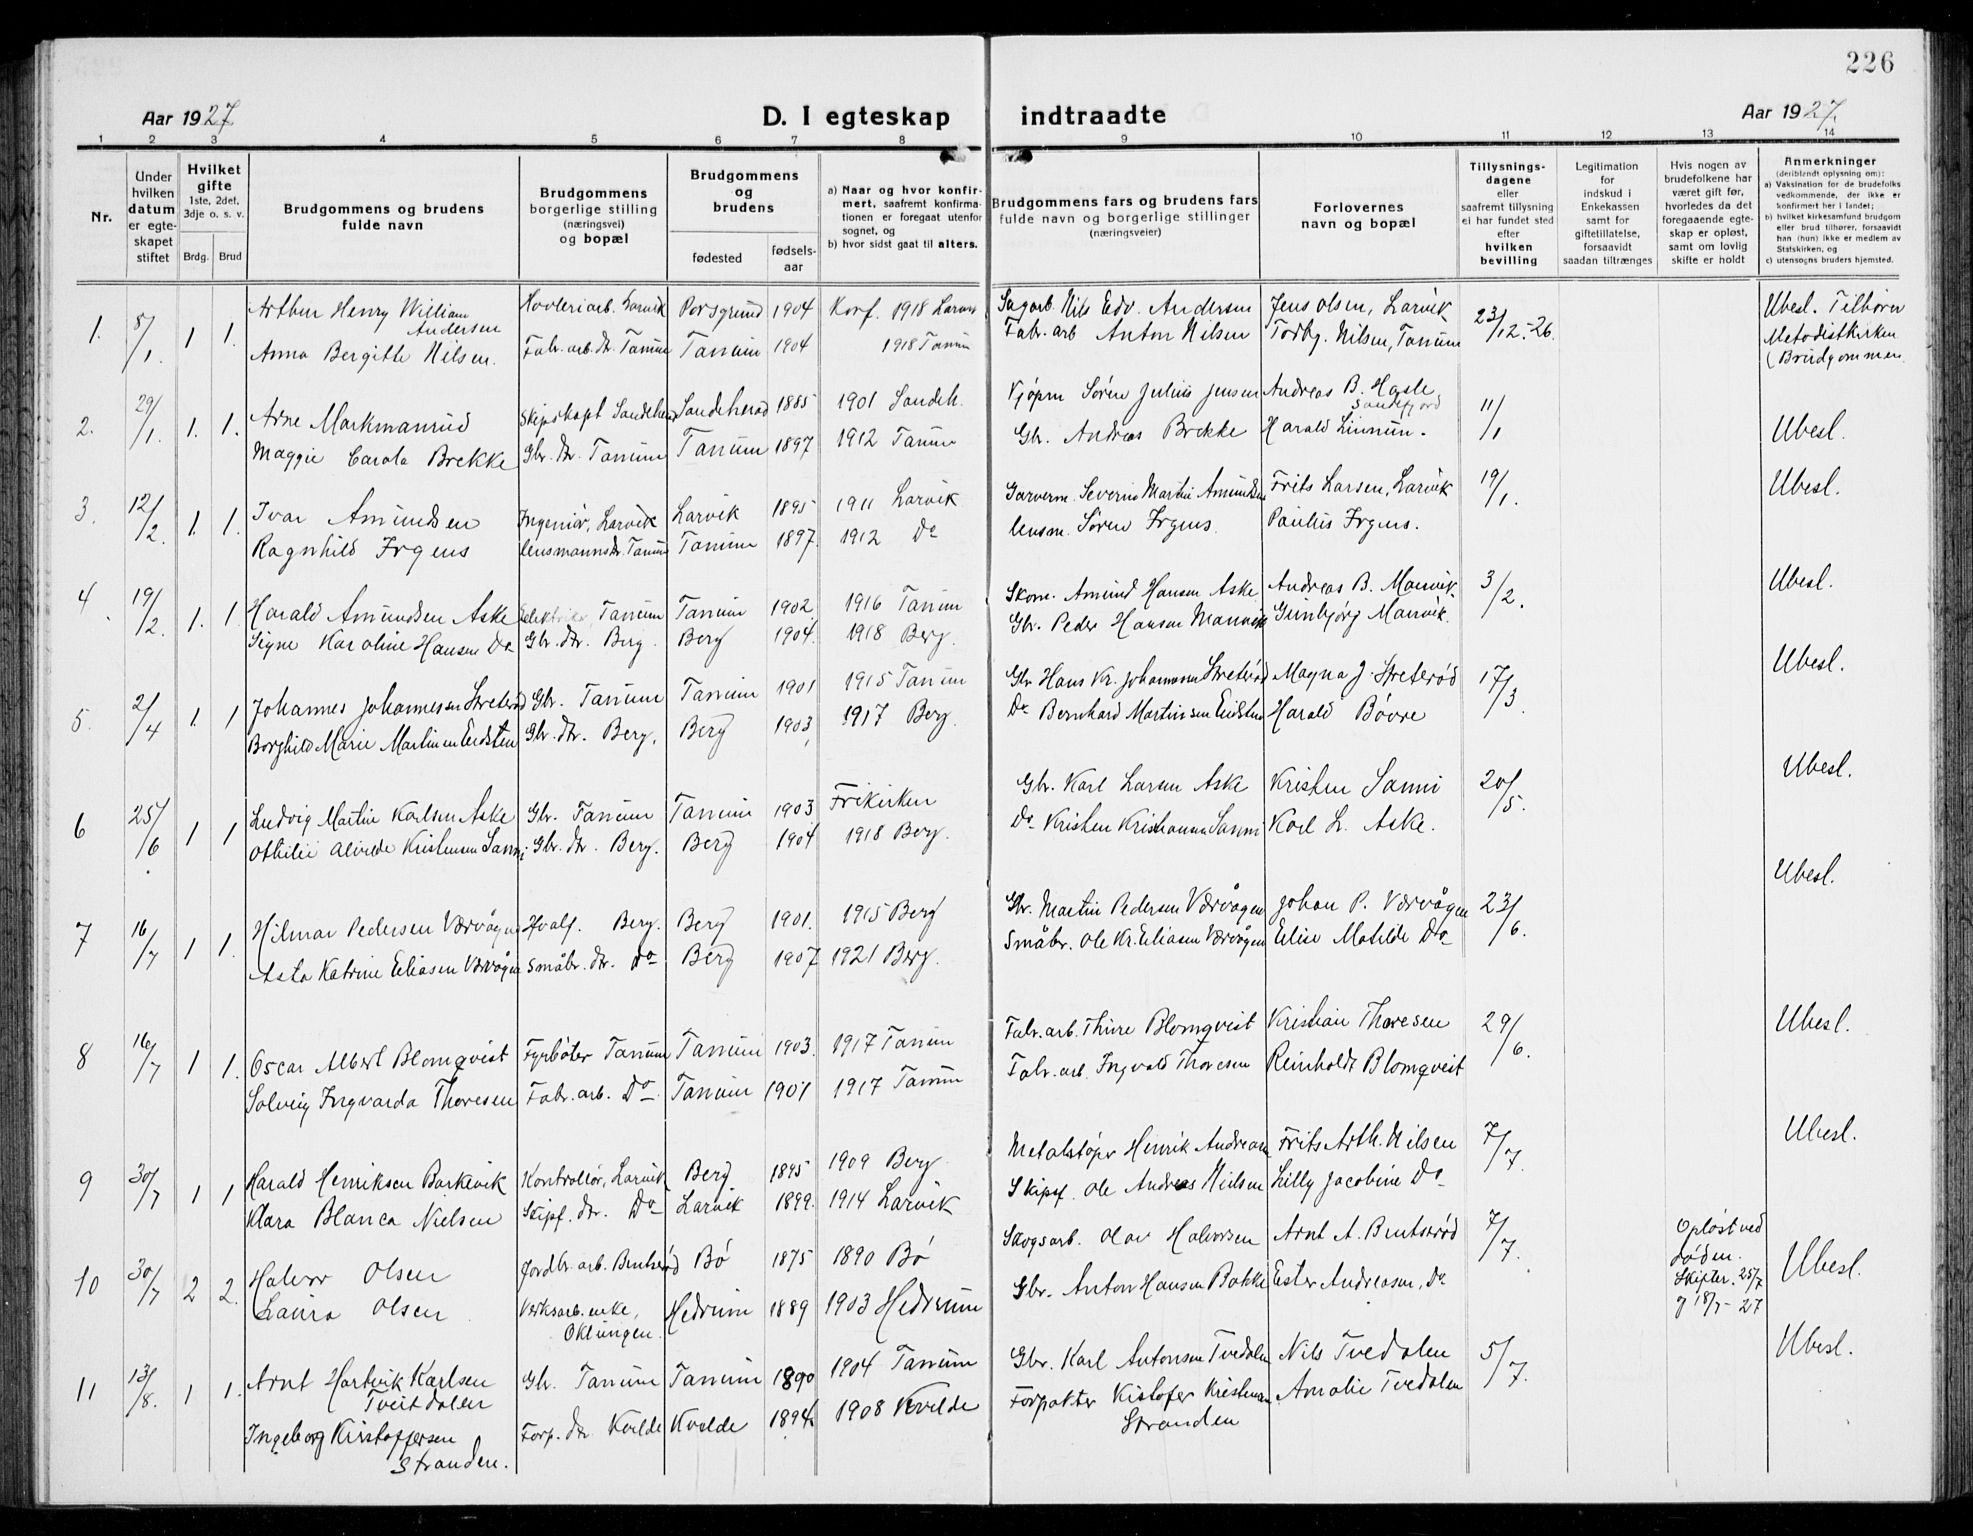 226
Aar 1927
D. I egteskap indtraadte
Aar 1927.
1 2 3 4 5 6 7 8 9 10 11 12 13 14
Nr.
Under
hvilken
datum
er egte-
skapet
stiftet
Hvilket
gifte
1ste, 2det,
3dje o. s. v.
Brdg. Brud
Brudgommens og brudens
fulde navn
Brudgommens
borgerlige stilling
(næringsvei)
og bopæl
Brudgommens
og
brudens
fødested
fødsels-
aar
a) Naar og hvor konfir-
mert, saafremt konfirma-
tionen er foregaat utenfor
sognet, og
b) hvor sidst gaat til alters.
Brudgommens fars og brudens fars
fulde navn og borgerlige stillinger
(næringsveier)
Forlovernes
navn og bopæl
Tillysnings-
dagene
eller
saafremt tillysning
ei har fundet sted
efter
hvilken
bevilling
Legitimation
for
indskud i
Enkekassen
samt for
giftetillatelse,
forsaavidt
saadan tiltrænges
Hvis nogen av
brudefolkene har
været gift før,
hvorledes da det
foregaaende egte-
skap er opløst,
samt om lovlig
skifte er holdt
Anmerkninger
(deriblendt oplysning om):
a) Vaksination for de brudefolks
vedkommende, der ikke er
konfirmert her i landet;
b) hvilket kirkesamfund brudgom
eller brud tilhører, forsaavidt
han (hun) ikke er medlem av
Statskirken, og
c) utensogns bruders hjemsted.
1. 8/1. 1 1. Arthur Henry William Andersen Høvleriarb. Larvik Porsgrund 1904 Konf. 1918 Larvik Sagarb. Nils Edv. Andersen Jens Olsen, Larvik 23/12.-26. Ubesl. Tilhører
Anna Bergitte Nilsen. Fabr. arb. dr. Tanum Tanum 1904 1918 Tanum Fabr. arb Anton Nilsen Torbg. Nilsen, Tanum Metodistkirken
(Brudgommen
2. 29/1. 1. 1. Arne Markmanrud Skipskapt Sandeherad Sandeherad 1885 1901 Sandeh. Kjøpm Søren Julius Jensen Andreas B. Hasle, Sandefjord 11/1
Maggie Carola Brekke Gbr. dr. Tanum Tanum 1897 1912 Tanum Gbr. Andreas Brekke Harald Linnum. Ubesl.
3. 12/2. 1. 1. Ivar Amundsen Ingeniør, Larvik Larvik 1895 1911 Larvik Garverm. Severin Martin Amundsen Frits Larsen, Larvik 19/1. Ubesl.
Ragnhild Irgens lensmannsdr. Tanum Tanum 1897. 1912 Do lensm. Søren Irgens. Paulus Irgens.
4. 19/2. 1. 1. Harald Amundsen Aske Elektriker Tanum Tanum 1902 1916 Tanum Skom. Amund Hansen Aske Andreas B. Manvik 3/2. Ubesl.
Signe Karoline Hansen Do Gbr. dr. Berg. Berg 1904. 1918 Berg. Gbr. Peder Hansen Manvik Gunbjørg Manvik.
5. 2/4 1. 1 Johannes Johannessen Streterød Gbr. Tanum Tanum 1901 1915 Tanum Gbr Hans Kr. Johannesen Streterød Magna J. Streterød 17/3. Ubesl.
Borghild Marie Martinsen Eidsten Gbr. dr. Berg. Berg 1903 1917 Berg. Do Bernhard Martinsen Eidsten Harald Bovre
6 25/6 1 1 Ludvig Martin Karlsen Aske Gbr. Tanum Tanum 1903 Frikirken Gbr. Karl Larsen Aske Kristen Sanni 20/5. Ubesl.
Othilie Alvilde Kristensen Sanni Gbr. dr. Berg. Berg 1904 1918 Berg. Do Kristen Kristiansen Sanni Karl L. Aske.
7 16/7 1 1. Hilmar Pedersen Værvågen Hvalf. Berg. Berg 1901. 1915 Berg Gbr. Martin Pedersen Værvågen Johan P. Værvågen 23/6. Ubesl.
Asta Katrine Eliasen Værvågen Småbr. dr. Do Berg 1907 1921 Berg. Småbr. Ole Kr. Eliasen Værvågen Elise Matilde Do
8 16/7 1 1. Oscar Albert Blomqvist Fyrbøter Tanum Tanum 1903. 1917 Tanum Fabr. arb. Thure Blomqvist Kristian Thoresen 29/6. Ubesl.
Solveig Ingvarda Thoresen Fabr. arb. Do Tanum 1901 1917 Tanum Fabr. arb. Ingvald Thoresen Reinholdt Blomqveist
9 30/7 1 1 Harald Henriksen Barkevik Kontrollør, Larvik Berg 1895 1909 Berg Metalstøper Henrik Andreasen Frits Arth. Nilsen 7/7. Ubesl.
Klara Blanca Nielsen Skipsf. dr. Do Larvik 1899. 1914 Larvik Skipsf. Ole Andreas Nielsen Lilly Jacobine Do
10 30/7 2 2. Halvor Olsen Jordbr. arb. Brutserød Bø 1875 1890 Bø Skogsarb. Olav Halvorsen Arnt A. Brutserød 7/7. Opløst ved
døden.
Skifter. 25/7
og 18/7 - 27 Ubesl.
Laura Olsen Verksarb. enke, Oklungen. Hedrum 1889 1903 Hedrum Gbr. Anton Hansen Bakke Ester Andreasen, Do
11 13/8. 1 1. Arnt Hartvik Karlsen Tveitdalen Gbr. Tanum Tanum 1890 1904 Tanum Gbr. Karl Antonsen Tvedalen Nils Tvedalen 5/7. Ubesl.
Ingeborg Kristoffersen Stranden. Forp. dr. Kvelde Kvelde 1894. 1908 Kvelde Forpakter Kistofer Kristensen Stranden Amalie Tvedalen